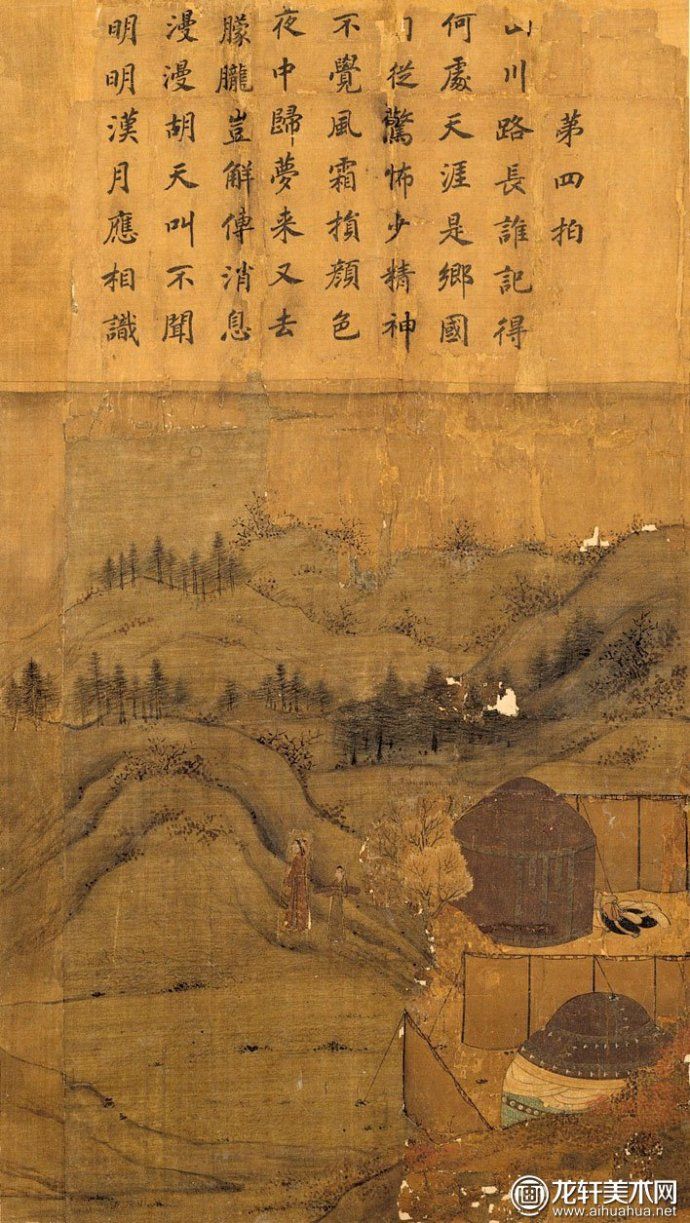 第四拍
山川路長誰記得
何處天涯是鄉國
從驚怖少精神
不覺風霜損顏色
夜中歸夢来又去
朦朧豈解傳消息
漫漫胡天叫不聞
明明漢月應相識
画 龙轩美术网
www.aihuahua.net